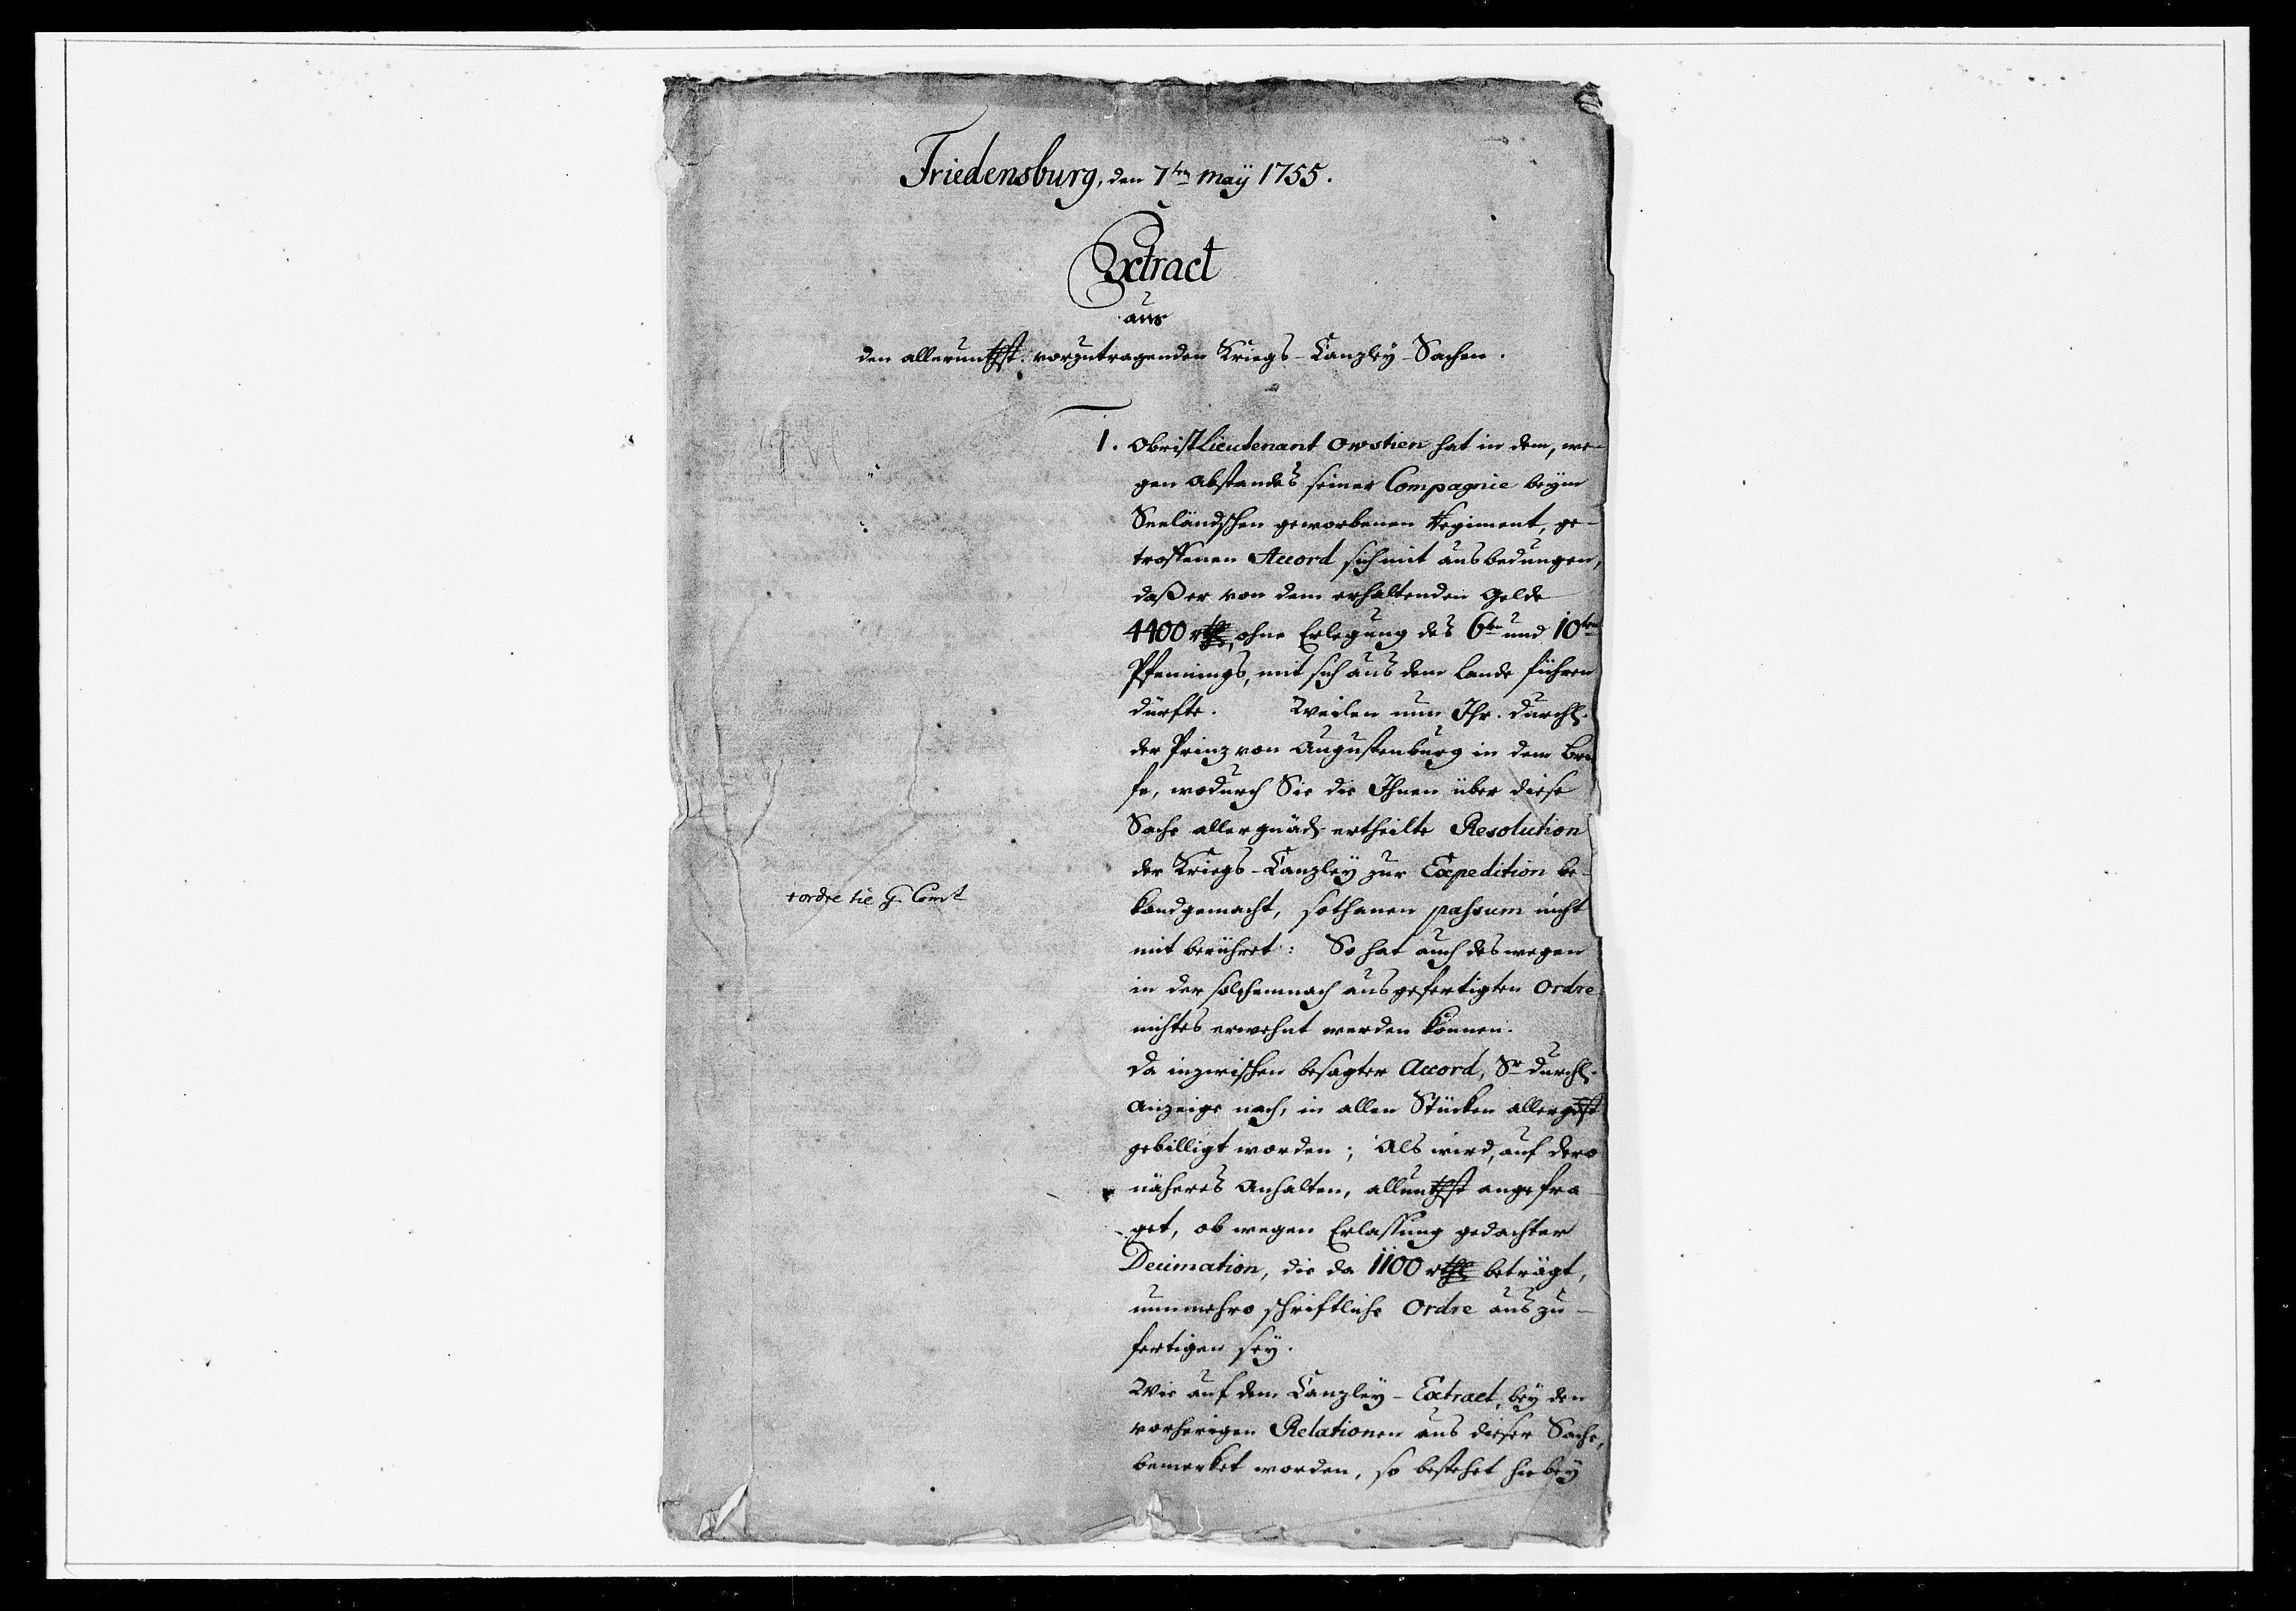 Friedensburg, den 7ten Maÿ 1755.
Extract
aus
den allerunthst. vorzutragenden Kriegs-Canzleÿ-Sachen.
1. ObristLieutenant Owstien hat in dem, we-
gen Abstandes seiner Compagnie beÿm
Seeländschen geworbenen Regiment, ge-
troffenen Accord sich mit ausbedungen,
daß er von dem erhaltenden Gelde
4400 rthl, ohne Erlegung des 6ten und 10ten
Pfennings, mit sich aus dem Lande führen
dürfte. Weilen nun Ihr. Durchl.
der Prinz von Augustenburg in dem Brie
fe, wodurch Sie die Ihnen über diese
Sache allergnäd. ertheilte Resolution
der Kriegs-Canzleÿ zur Expedition be-
kandgemacht, sothanen passum nicht
mit berühret: So hat auch deswegen
in der solchemnach ausgefertigten Ordre
nichtes erwehnt werden können.
Da inzwischen besagter Accord, Sr Durchl.
Anzeige nach, in allen Stücken allergdst
gebilligt worden; Als wird, auf dero
näheres Anhalten, allunthst angefra-
get, ob wegen Erlassung gedachter
Decimation, die da 1100 rthl beträgt,
nunmehro schriftliche Ordre auszu-
fertigen seÿ.
Wie auf dem Canzleÿ-Extract, beÿ den
vorherigen Relationen aus dieser Sache,
bemerket worden, so bestehet hiebeÿ
ordre til G. Com̅t